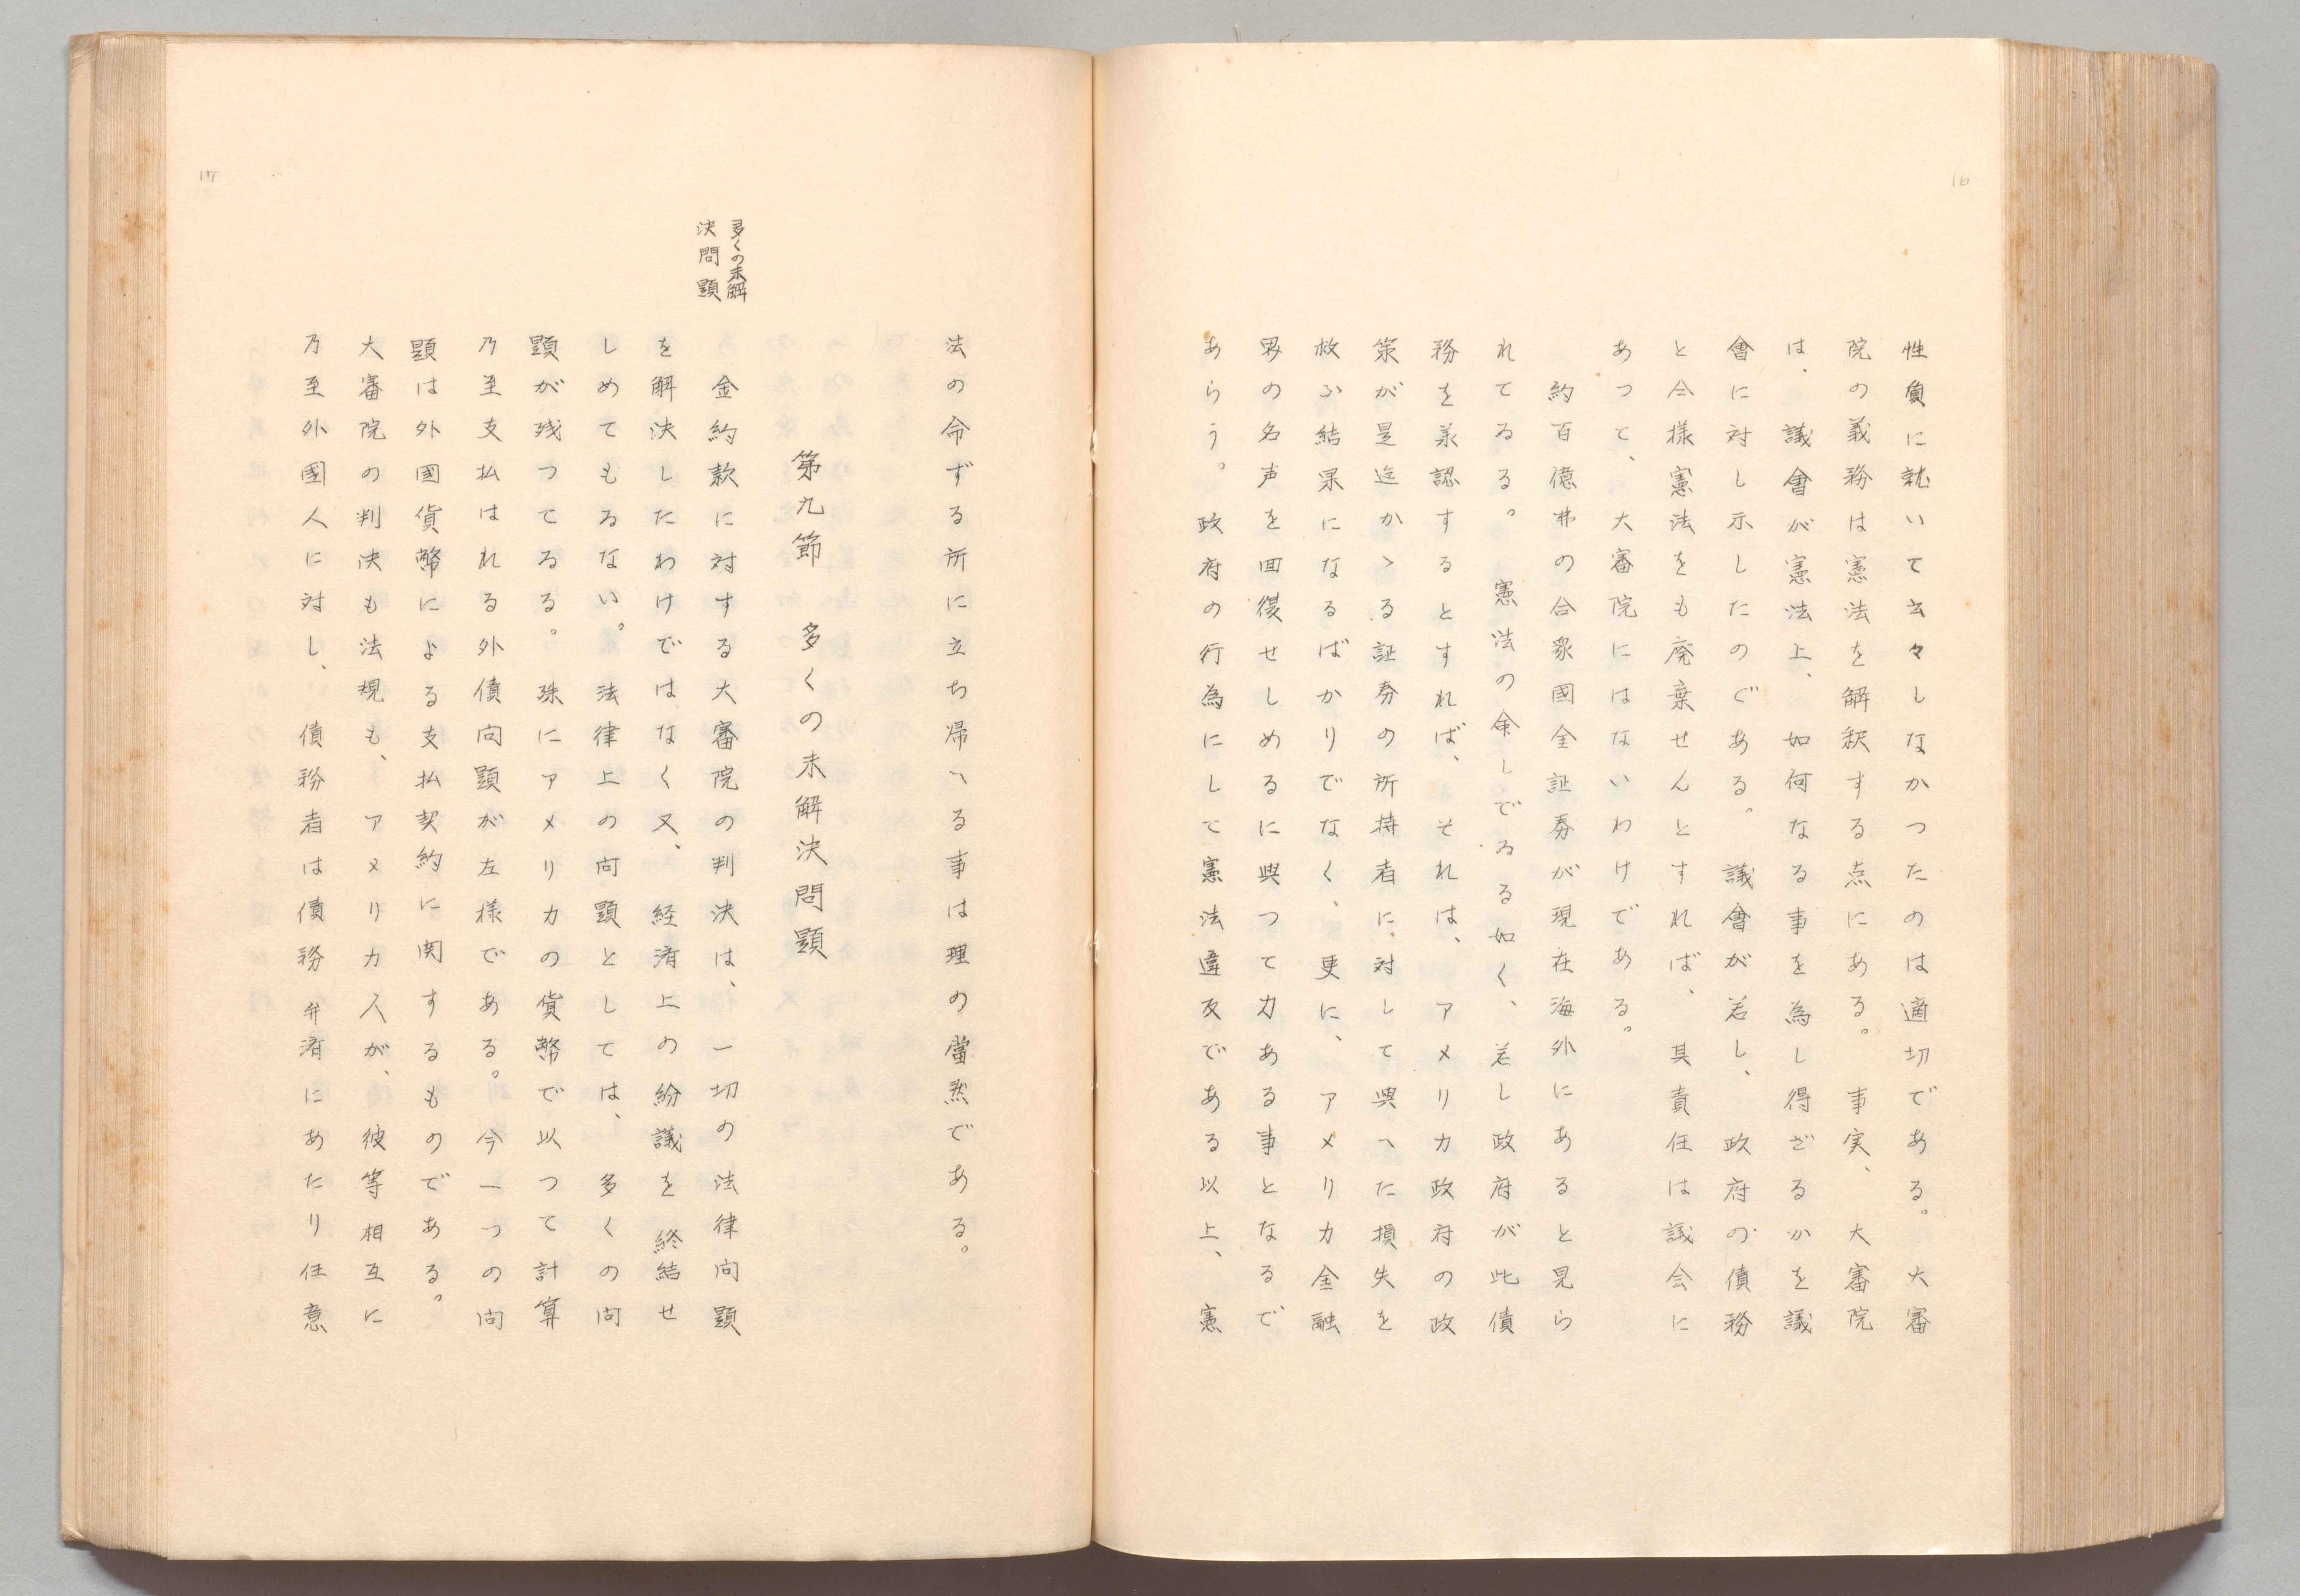 16
性質に就いて云々しなかつたのは適切である。大審
院の義務は憲法を解釈する点にある。事実、大審院
は、議會が憲法上、如何なる事を為し得ざるかを議
會に対し示したのである。議會が若し、政府の債務
と仝様憲法をも廃棄せんとすれば、其責任は議会に
あつて、大審院にはないわけである。
約百億弗の合衆國金証券が現在海外にあると見ら
れてゐる。憲法の命しでゐる如く、若し政府が此債
務を承認するとすれば、それは、アメリカ政府の政
策が是迄かゝる証券の所持者に対して與へた損失を
救ふ結果になるばかりでなく、更に、アメリカ金融
界の名声を回復せしめるに與つて力ある事となるで
あらう。政府の行為にして憲法違反である以上、憲
法の命ずる所に立ち帰へる事は理の當然である。
第九節 多くの未解決問題
多くの未解
決問題
金約款に対する大審院の判決は、一切の法律問題
を解決したわけではなく又、経済上の紛議を終結せ
しめてもゐない。法律上の問題としては、多くの問
題が残つてゐる。殊にアメリカの貨幣で以つて計算
乃至支払はれる外債問題が左様である。今一つの問
題は外國貨幣による支払契約に関するものである。
大審院の判決も法規も、アメリカ人が、彼等相互に
乃至外國人に対し、債務者は債務弁済にあたり任意